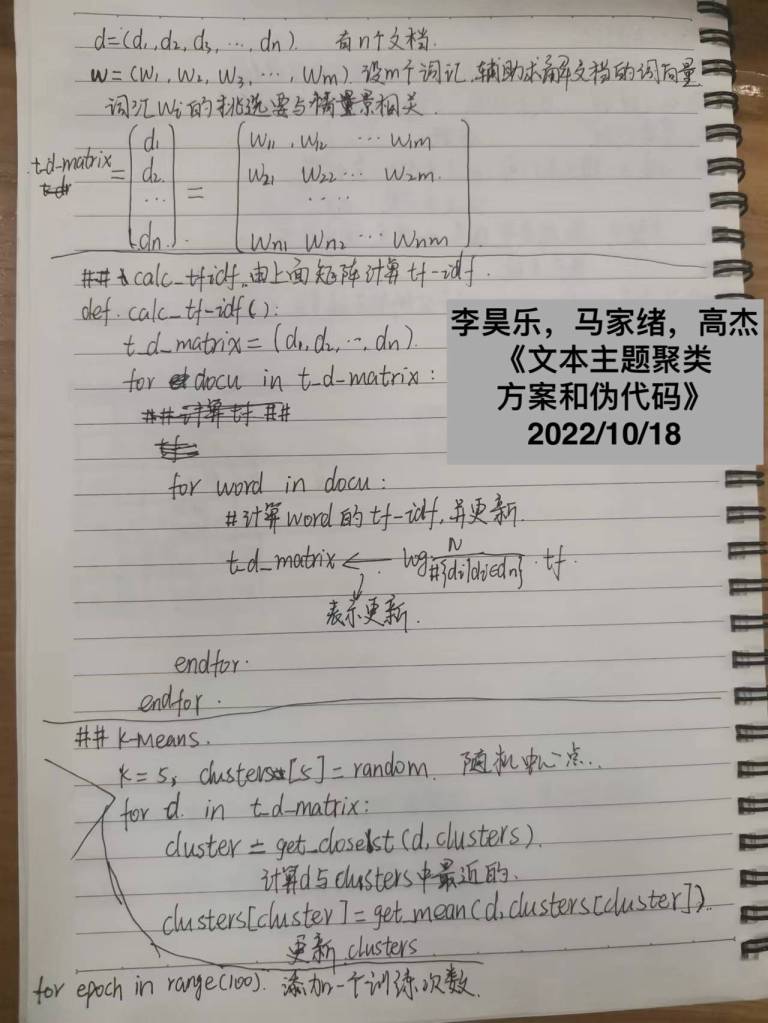 d=(d₁,d₂,d₃,…,dn). 有n个文档.
w=(w₁,w₂,w₃,…,wm) 设m个词记,辅助求解文档的词向量
词汇wi的挑选要与情景相关.
t_d-matrix = [d₁ d₂ … dn] = [w₁₁, w₁₂ … w₁m
w₂₁ w₂₂ … w₂m.
….
wn₁ wn₂ … wnm].
## calc_tfidf.由上面矩阵计算tf-idf.
def. calc_tf-idf():
t_d_matrix=(d₁,d₂,…,dn).
for docu in t_d-matrix:
##计算tf ##
tf
for word in docu:
#计算word的tf-idf,并更新.
t_d_matrix ← log N/#{di|di∈dn} · tf.
表示更新.
endfor.
endfor.
## K-Means.
K=5, clusters[5]=random. 随机中心点..
for d. in t_d_matrix:
cluster = get_closest(d,clusters).
计算d与clusters中最近的.
clusters[cluster]=get_mean(d,clusters[cluster]).
更新 clusters
for epoch in range(100). 添加一个训练次数.
李昊乐，马家绪，高杰
《文本主题聚类
方案和伪代码》
2022/10/18